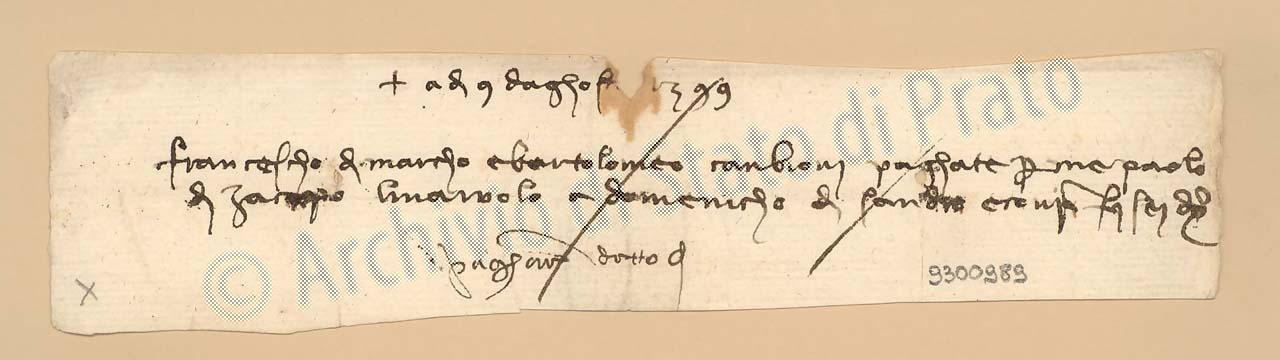 + a dì 9 daghos 1399
francescho di marcho e bartolomeo canbioni paghate p me paolo
di zacopo linaiuolo a domenicho di sandro e conp
paghate detto dì
9300989
X
© Archivio di Stato di Prato